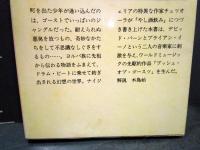 町を出た少年が迷い込んだの
は、ゴーストでいっぱいのジ
ャングルだった。耐えられぬ
悪臭を放つもの、奇妙なかた
ちをして不思議なしぐさをす
るもの…。ヨルバ族に先祖
から伝わる物語をふまえて、
ドラム・ビートに乗せて紡ぎ
出される幻想の世界。ナイジ
ェリアの特異な作家チュツオ
ーラが『やし酒飲み』につづ
き書き上げた本書は、デビッ
ド・バーンとブライアン・イ
ーノという二人の音楽家に刺
激を与え、ワールドミュージ
ックの先駆的作品『ブッシュ・
オブ・ゴースツ』を生んだ。
解説